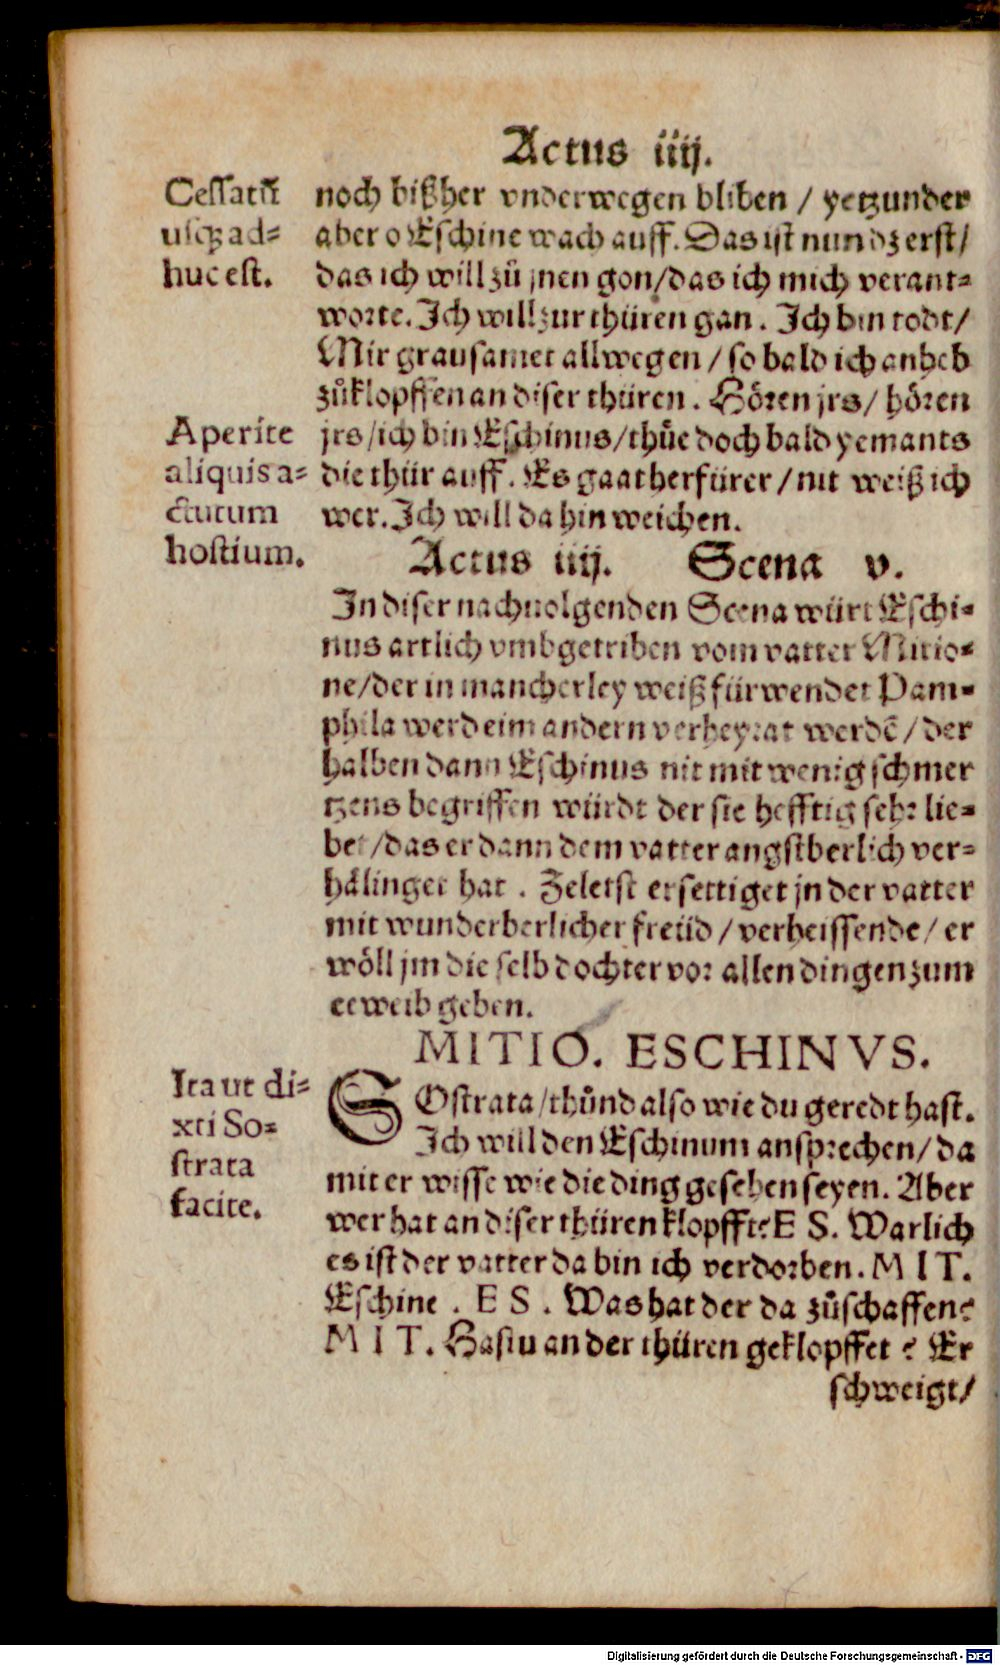 Actus iiij.
Cessatũ
usqꝫ ad-
huc est.
noch bißher vnderwegen bliben / yetzunder
aber o Eschine wach auff. Das ist nun dz erst /
das ich will zů jnen gon / das ich mich verant-
worte. Ich will zur thüren gan. Ich bin todt /
Mir grausamet allwegen / so bald ich anheb
zůklopffen an diser thüren. Hören jrs / hören
Aperite
aliquis a-
ctutum
hostium.
jrs / ich bin Eschinus / thůe doch bald yemants
die thür auff. Es gaat herfürer / nit weiß ich
wer. Ich will da hin weichen.
Actus iiij. Scena v.
In diser nachuolgenden Scena würt Eschi-
nus artlich vmbgetriben vom vatter Mitio-
ne / der in mancherley weiß fürwendet Pam-
phila werd eim andern verheyrat werdē / der
halben dann Eschinus nit mit wenig schmer
tzens begriffen würdt der sie hefftig sehr lie-
bet / das er dann dem vatter angstberlich ver-
hälinget hat. Zeletst ersettiget jn der vatter
mit wunderberlicher freüd / verheissende / er
wöll jm die selb dochter vor allen dingen zum
eeweib geben.
MITIO. ESCHINVS.
Ita ut di-
xti So-
strata
facite.
SOstrata / thůnd also wie du geredt hast.
Ich will den Eschinum ansprechen / da
mit er wisse wie die ding gesehen seyen. Aber
wer hat an diser thüren klopfft? E S. Warlich
es ist der vatter da bin ich verdorben. M I T.
Eschine. E S. Was hat der da zůschaffen?
M I T. Hastu an der thüren geklopffet? Er
schweigt /
Digitalisierung gefördert durch die Deutsche Forschungsgemeinschaft - DFG